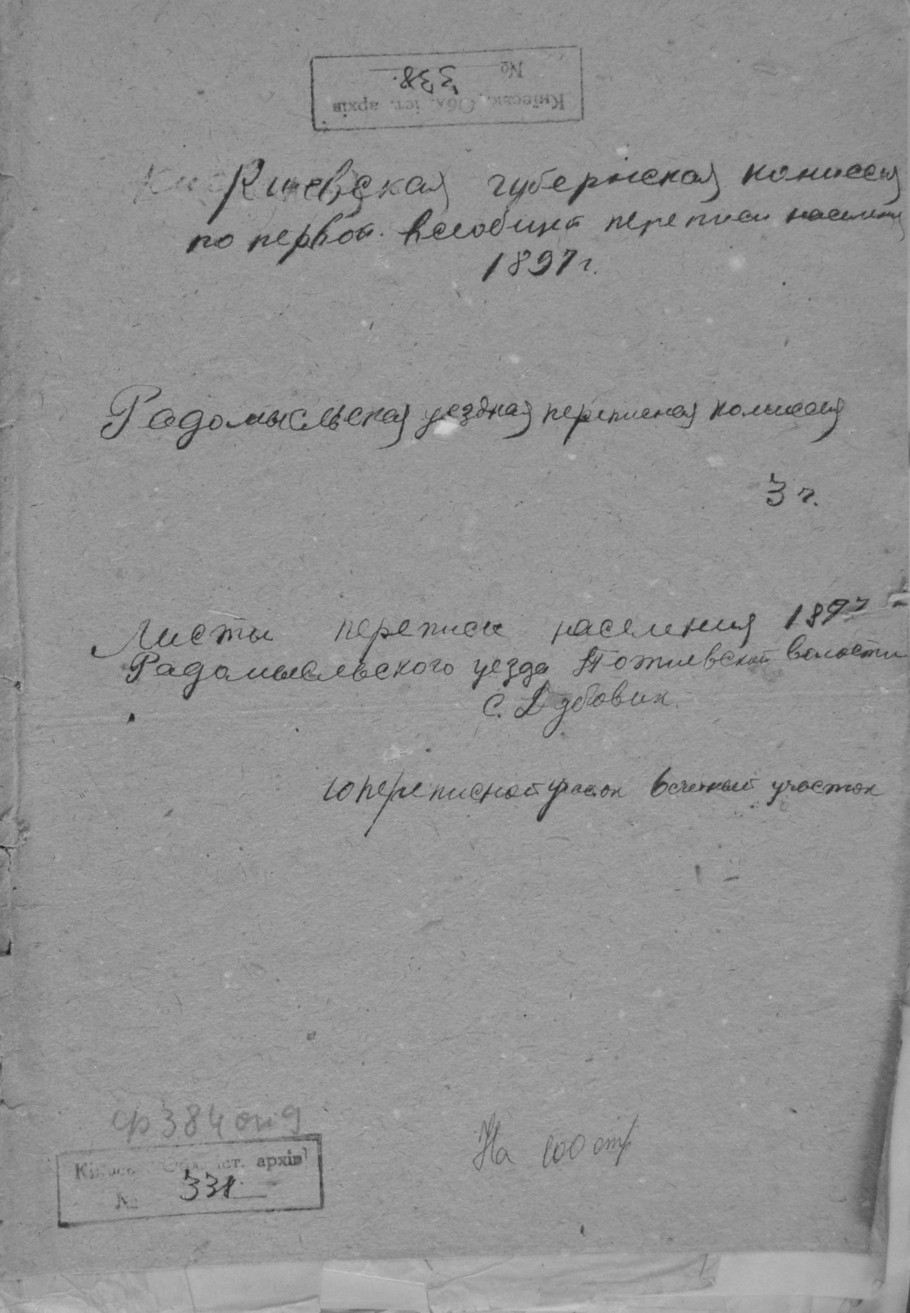 Київськ. Обл. іст. архів
№ 338.
Киевская губернская комиссия
по первой всеобщей переписи населения
1897 г.
Радомысльская уездная переписная комиссия
3 г.
Листы переписи населения 1897
Радомысльского уезда волости
С. Дубовик
10 переписной участок 6 счетный участок
ф 384 оп 9
Київськ. Обл. іст. архів
№ 338.
На 100 стр